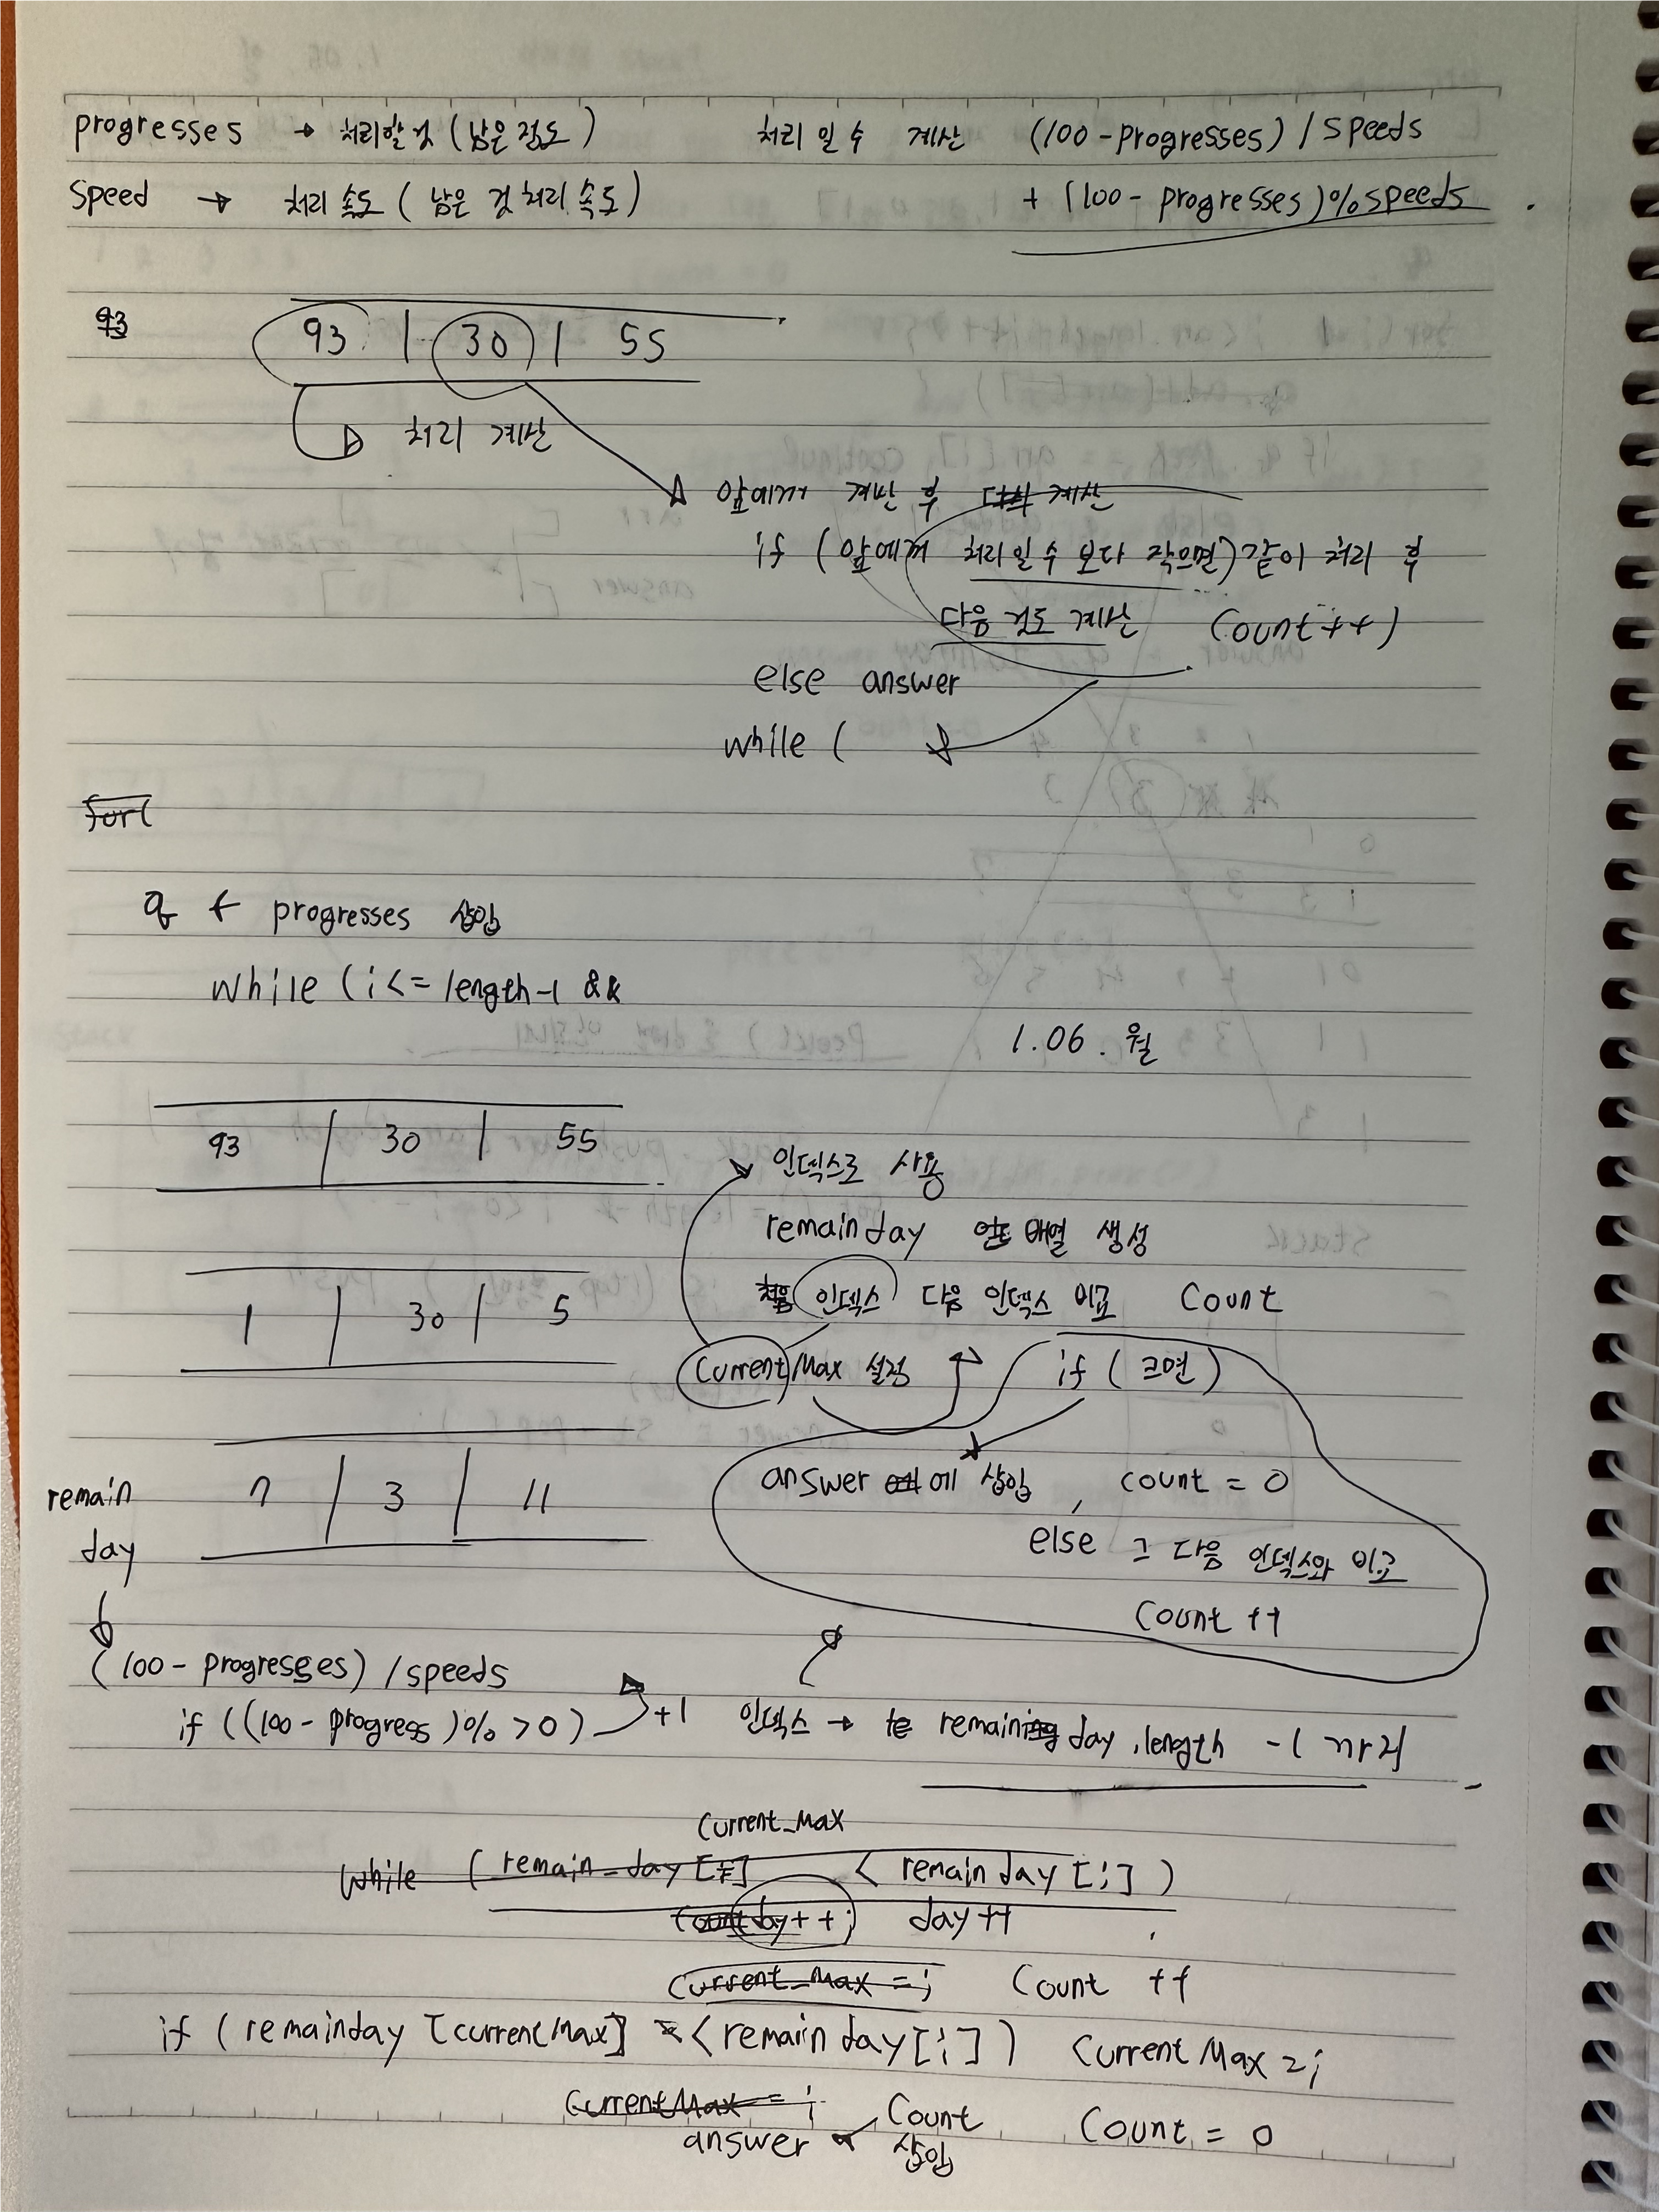 progresses → 처리할 것 (남은 정도)
처리 일 수 계산 (100-progresses) / speeds
speed → 처리 속도 ( 남은 것 처리 속도)
+ (100 - progresses)%speeds
93
93 | 30 | 55
처리 계산
앞에꺼 계산 후 다시 계산
if (앞에꺼 처리일 수 보다 작으면) 같이 처리 후
다음 것도 계산 (count++)
else answer
while (
for(
q ← progresses 삽입
while (i <= length-1 &&
1.06. 월
93 | 30 | 55
인덱스로 사용
remainday 배열 생성
1 | 30 | 5
처음 인덱스 다음 인덱스 비교 count
Current Max 설정 if ( 크면 )
remain 7 | 3 | 11
day
answer 에 삽입, count = 0
else 그 다음 인덱스와 비교
Count ++
(100 - progresses) / speeds
if ((100 - progress)% > 0) +1
인덱스 → remaining day.length -1 까지
Current_Max
while (remain_day [i] < remain day [i] )
count day++; day++
Current_Max = i Count ++
if ( remainday [currentMax] < remain day [i] ) Current Max = i
CurrentMax = i
answer ← Count 삽입 Count = 0